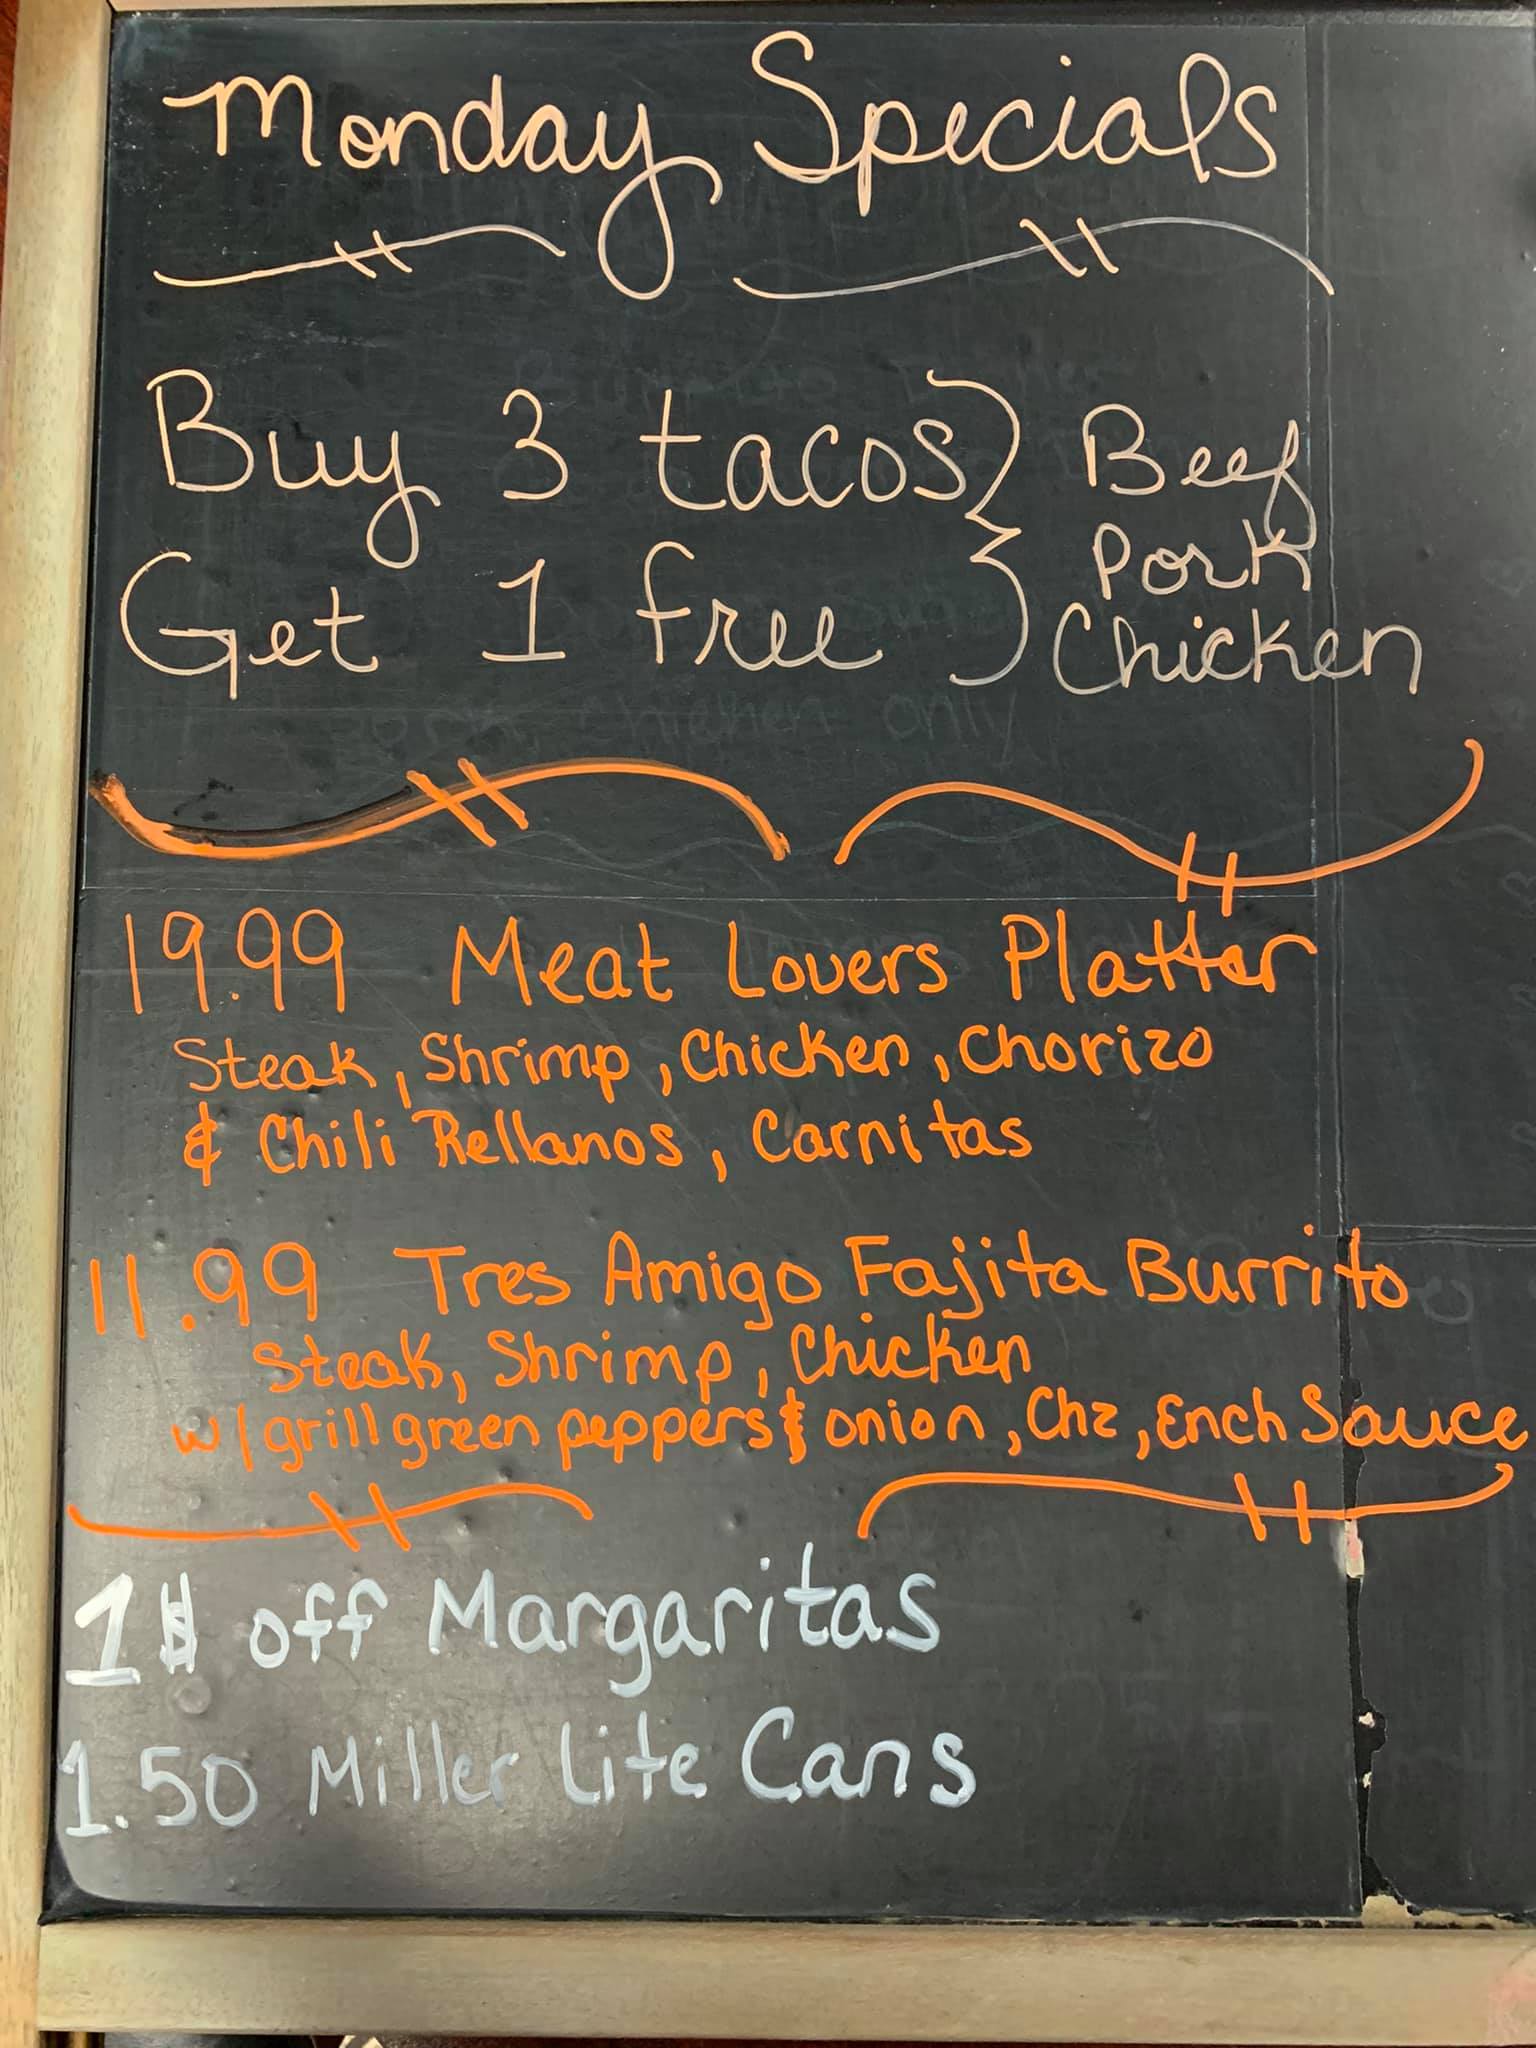 Monday Specials
Buy 3 tacos } Beef
Get 1 free Pork
Chicken
19.99 Meat Lovers Platter
Steak, Shrimp, Chicken, Chorizo
& Chili Rellanos, Carnitas
11.99 Tres Amigo Fajita Burrito
Steak, Shrimp, Chicken
w/ grill green peppers & onion, Chz, Ench Sauce
1$ off Margaritas
1.50 Miller Lite Cans